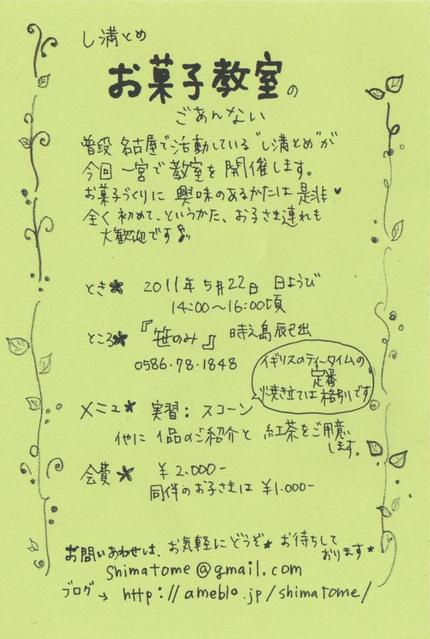 し満とめ
お菓子教室の
ごあんない
普段 名古屋で活動している"し満とめ"が
今回 一宮で教室を開催します。
お菓子づくりに 興味のあるかたは是非♥
全く初めて、というかた、お子さま連れも
大歓迎です♪
とき★ 2011年 5月22日 日ようび
14:00〜16:00頃
ところ★ 『笹のみ』 時之島辰已出
0586・78・1848
イギリスのティータイムの
定番
焼き立ては格別です
メニュ★ 実習: スコーン
他に 1品のご紹介と 紅茶をご用意
します。
会費★ ¥2.000-
同伴のお子さまは ¥1.000-
お問いあわせは、お気軽にどうぞ★ お待ちして
おります★
shimatome@gmail.com
ブログ→ http://ameblo.jp/shimatome/